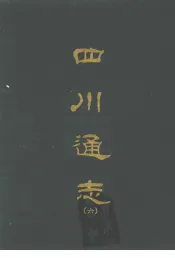 四川通志
(六)